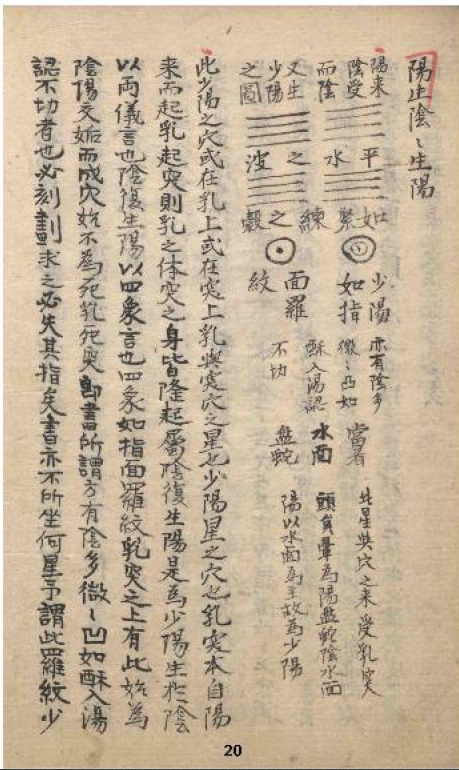 陽生陰〻生陽
陽来
陰受
而陰
又生
少陽
之圖
平
水
之
波
如
縠
練
之
縠
少陽
如指
面羅
紋
亦有陰多
微〻凸如
酥入湯認
不切
當看
水面
盤蛇
此星與穴之来受乳突
頭有暈為陽盤蛇陰水面
陽以水面為主故為少陽
此少陽之穴或在乳上或在突上乳與突穴之星也少陽星之穴也乳突本自陽
来而起乳起突則乳之体突之身皆隆起屬陰復生陽是為少陽生於陰
以両儀言也陰復生陽以四象言也四象如指面羅紋乳突之上有此始為
陰陽交姤而成穴始不為死乳死突郭書所謂方有陰多微〻凹如酥入湯
認不切者也必刻劃求之必失其指矣書亦不所坐何星予謂此羅紋少
20